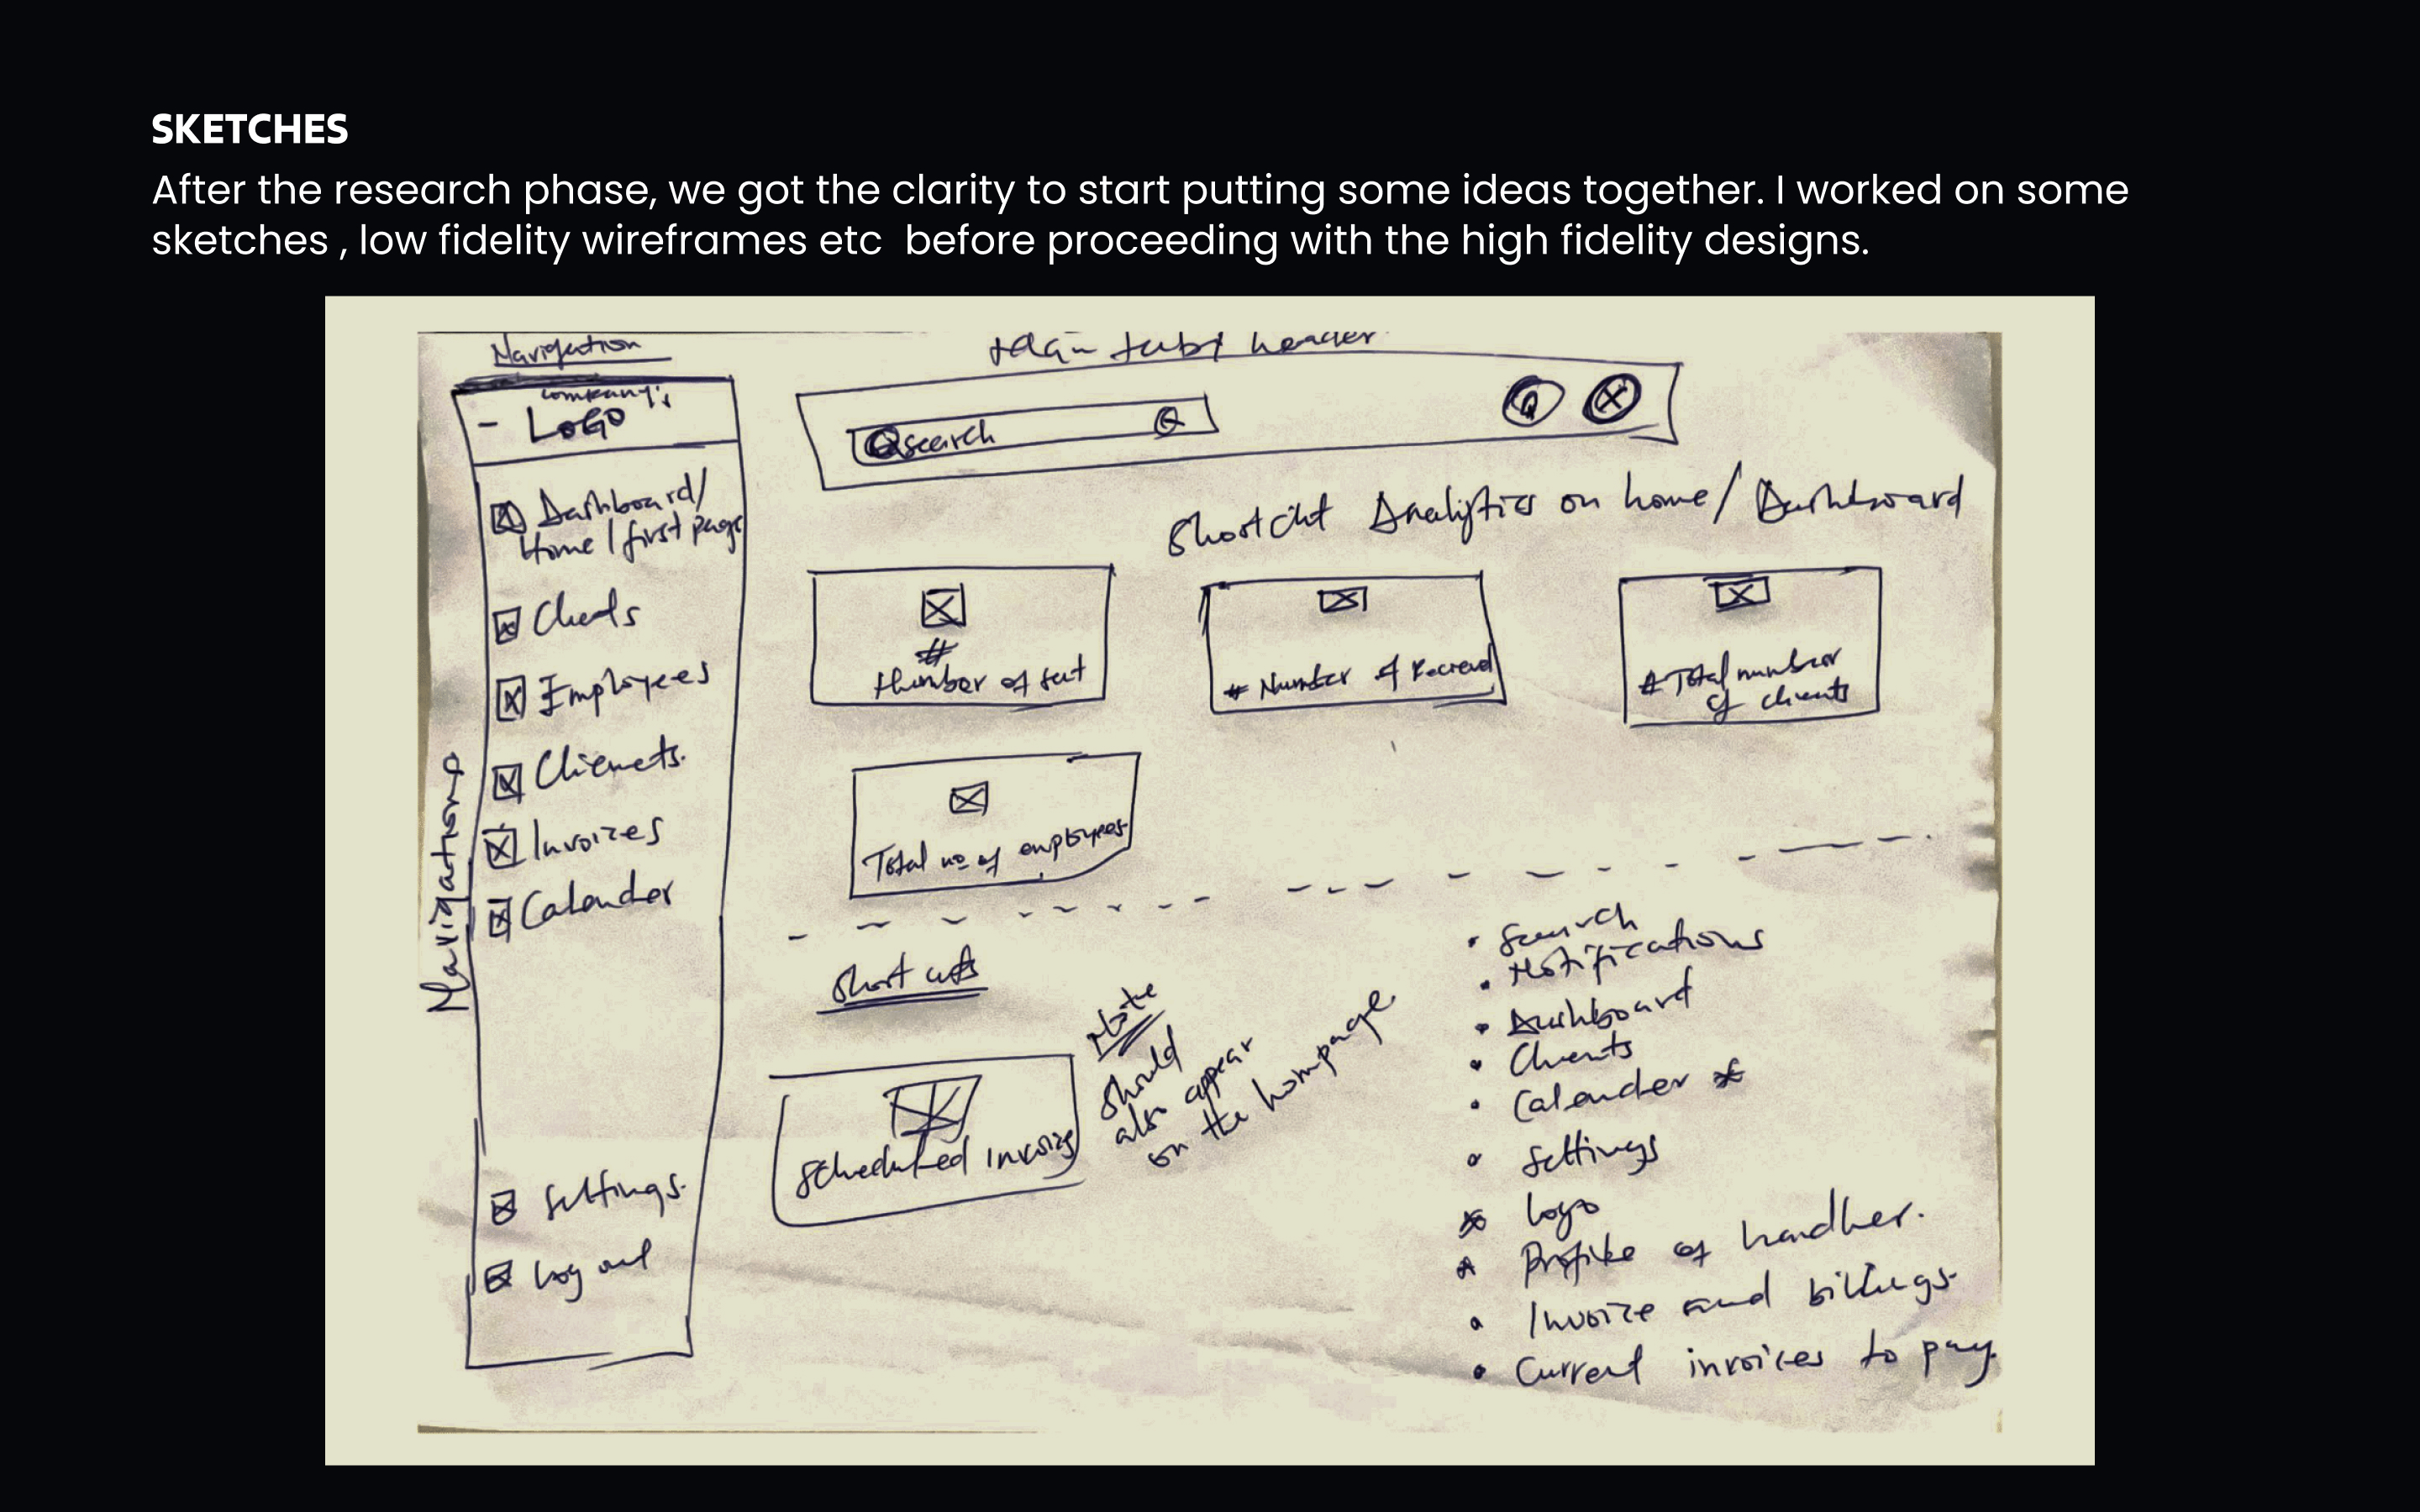 SKETCHES
After the research phase, we got the clarity to start putting some ideas together. I worked on some
sketches , low fidelity wireframes etc  before proceeding with the high fidelity designs.
Navigation
header
company's
- LOGO
search
Dashboard/
Home / first page
Clients
Employees
Clienets.
Invoices
Calander
Settings.
Log out
Navigations
Shortcut Analytics on home/ Dashboard
#
Number of sent
# Number of
# Total number
of clients
Total no of employees
Short cuts
Scheduled invoices
Note
Should
also appear
on the hompage
• Search
• Notifications
• Dashboard
• Clients
• Calander *
• Settings
* Logo
* Profile of handler.
• Invoice and billings.
• Current invoices to pay.